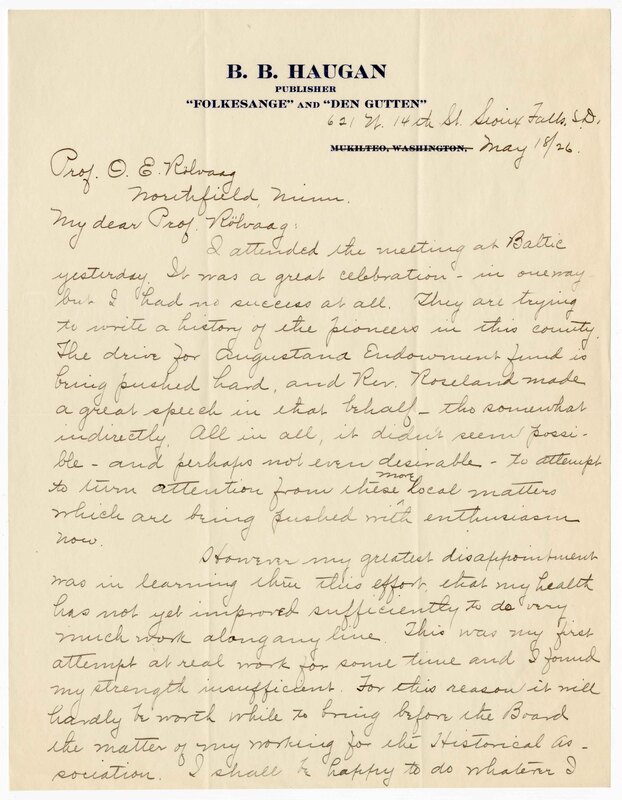 B. B. HAUGAN
PUBLISHER
"FOLKESANGE" AND "DEN GUTTEN"
621 N. 14th St. Sioux Falls, S.D.
MUKILTEO, WASHINGTON. May 18/26.
Prof. O. E. Rölvaag
Northfield, Minn.
My dear Prof. Rölvaag:
I attended the meeting at Baltic
yesterday. It was a great celebration - in one way -
but I had no success at all. They are trying
to write a history of the pioneers in this county.
The drive for Augustana Endowment fund is
being pushed hard, and Rev. Roseland made
a great speech in that behalf - tho somewhat
indirectly. All in all, it didn't seem possi-
ble - and perhaps not even desirable - to attempt
to turn attention from these more local matters
which are being pushed with enthusiasm
now.
However my greatest disappointment
was in learning thru this effort, that my health
has not yet improved sufficiently to do very
much work along any line. This was my first
attempt at real work for some time and I found
my strength insufficient. For this reason it will
hardly be worth while to bring before the Board
the matter of my working for the Historical As-
sociation. I shall be happy to do whatever I